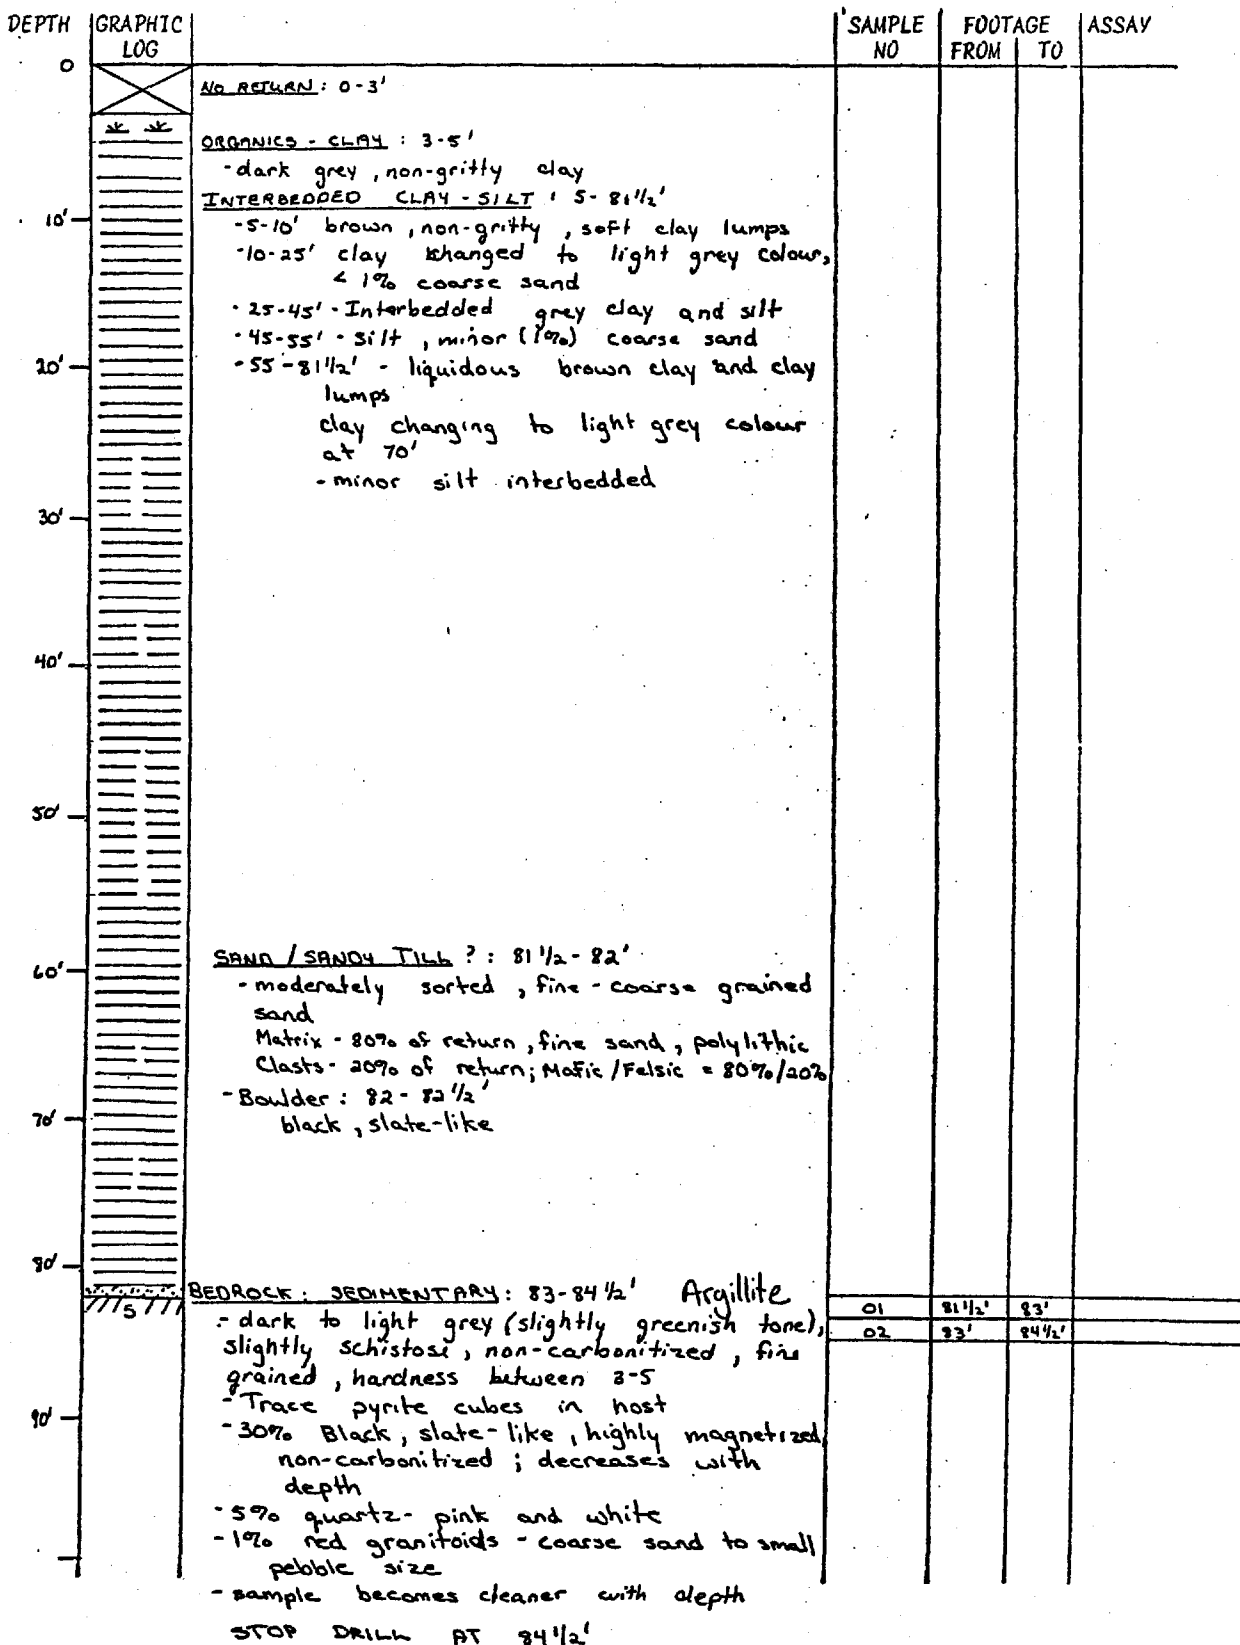 DEPTH GRAPHIC LOG SAMPLE NO FOOTAGE FROM TO ASSAY
0
NO RETURN: 0-3'
ORGANICS - CLAY : 3-5'
- dark grey, non-gritty clay
INTERBEDDED CLAY - SILT : 5- 81 1/2'
10'
-5-10' brown, non-gritty, soft clay lumps
-10-25' clay changed to light grey colour,
< 1% coarse sand
- 25-45' - Interbedded grey clay and silt
- 45-55' - silt, minor (1%) coarse sand
20'
- 55-81 1/2' - liquidous brown clay and clay
lumps
clay changing to light grey colour
at 70'
- minor silt interbedded
30'
40'
50'
SAND / SANDY TILL ? : 81 1/2 - 82'
60'
- moderately sorted, fine - coarse grained
sand
Matrix - 80% of return, fine sand, polylithic
Clasts - 20% of return; Mafic / Felsic = 80%/20%
- Boulder : 82 - 82 1/2'
70'
black, slate-like
80'
BEDROCK : SEDIMENTARY : 83-84 1/2' Argillite
5
01 81 1/2' 83'
- dark to light grey (slightly greenish tone),
02 83' 84 1/2'
slightly schistose, non-carbonitized, fine
grained, hardness between 3-5
- Trace pyrite cubes in host
90'
- 30% Black, slate-like, highly magnetized,
non-carbonitized ; decreases with
depth
- 5% quartz - pink and white
- 1% red granitoids - coarse sand to small
pebble size
- sample becomes cleaner with depth
STOP DRILL AT 84 1/2'